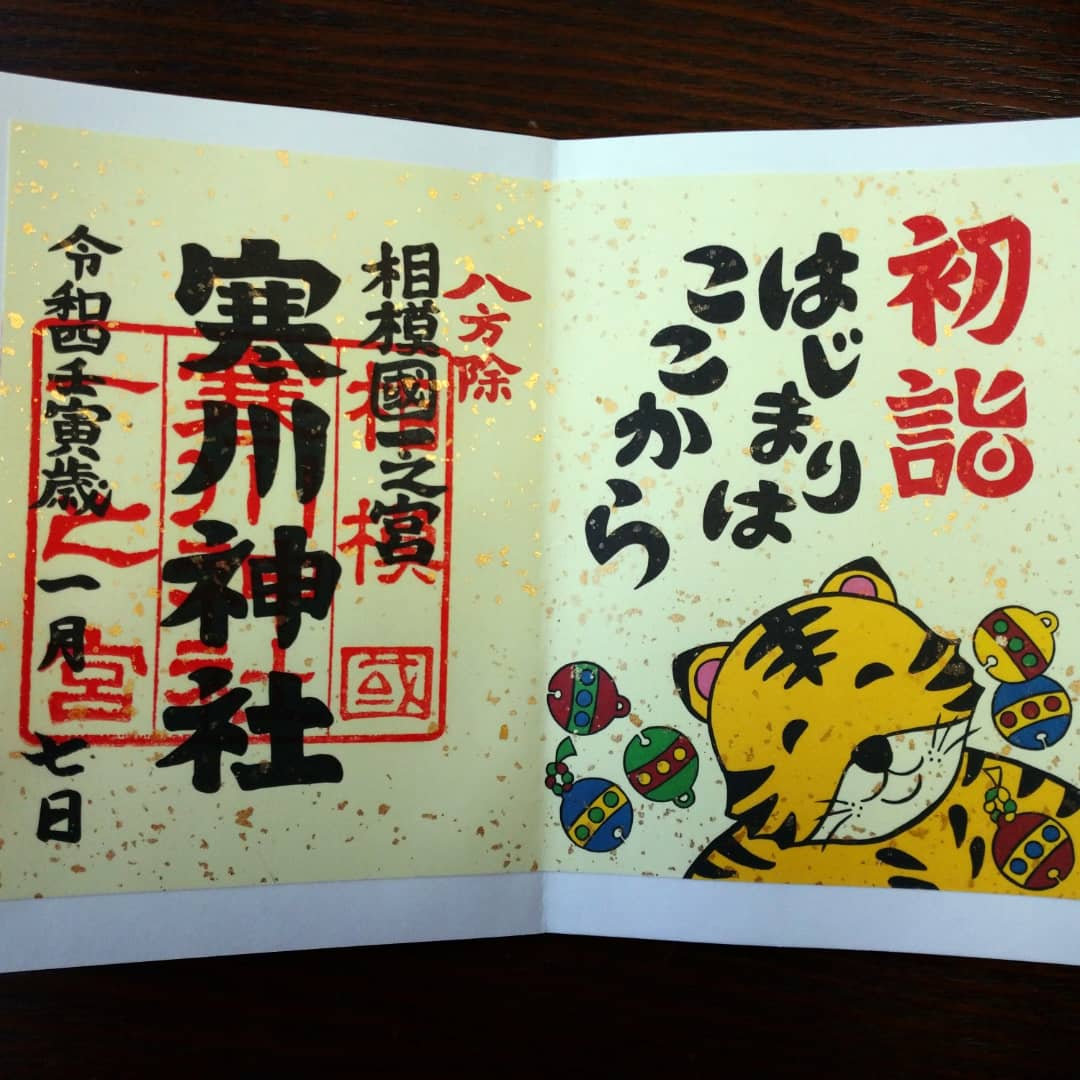 初詣
はじまりは
ここから
八方除
相模國一之宮
寒川神社
令和四壬寅歳 一月 七日
相模國
寒川神社
一之宮